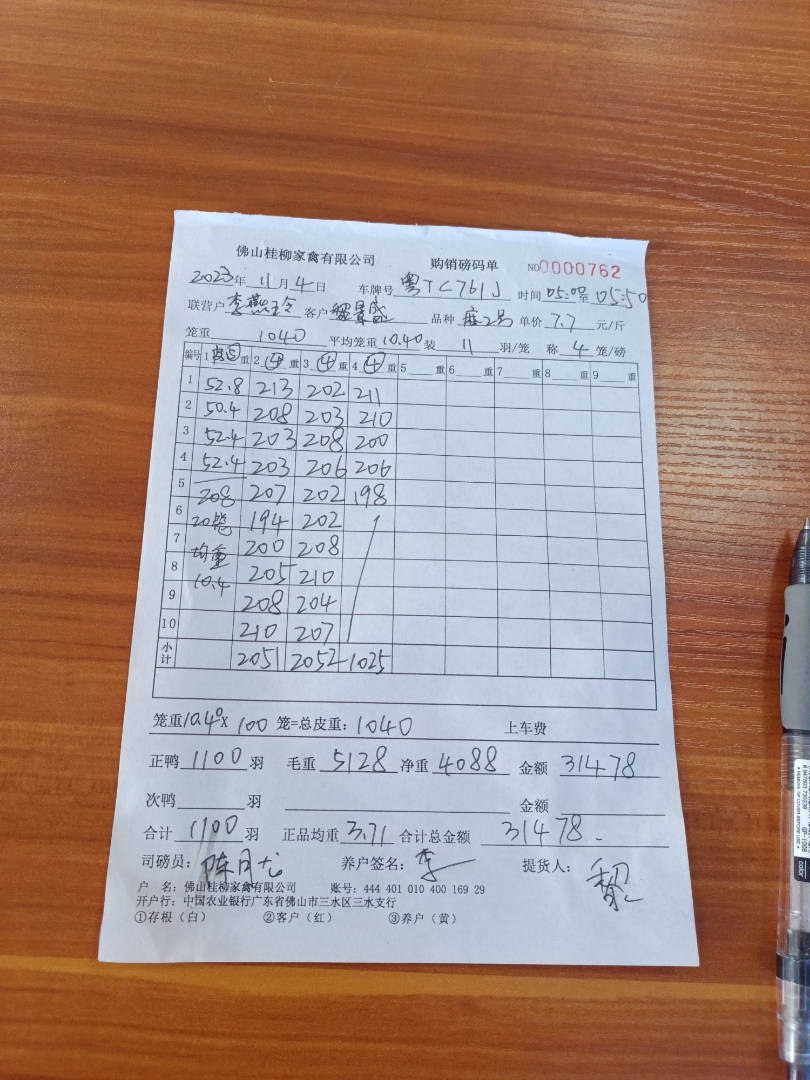 佛山桂柳家禽有限公司 购销磅码单 NO0000762
2023年 11月 4日 车牌号 粤TC761J 时间 05:00至05:50
联营户 李燕玲 客户 盛 品种 麻2号 单价 7.7 元/斤
笼重 1040 平均笼重 10.40 装 11 羽/笼 称 4 笼/磅
编号 1 重 2 ④ 重 3 ④ 重 4 ④ 重 5 重 6 重 7 重 8 重 9 重
1 52.8 213 202 211
2 50.4 208 203 210
3 52.4 203 208 200
4 52.4 203 206 206
5 208 207 202 198
6 20笼 194 202
7 均重 200 208
8 10.4 205 210
9 208 204
10 210 207
小计 2051 2052 1025
笼重10.40 X 100 笼=总皮重: 1040 上车费
正鸭 1100 羽 毛重 5128 净重 4088 金额 31478
次鸭 羽 金额
合计 1100 羽 正品均重 3.71 合计总金额 31478
司磅员: 陈月尤 养户签名: 李 提货人: 黎
户 名: 佛山桂柳家禽有限公司 账号: 444 401 010 400 169 29
开户行: 中国农业银行广东省佛山市三水区三水支行
①存根(白) ②客户(红) ③养户(黄)